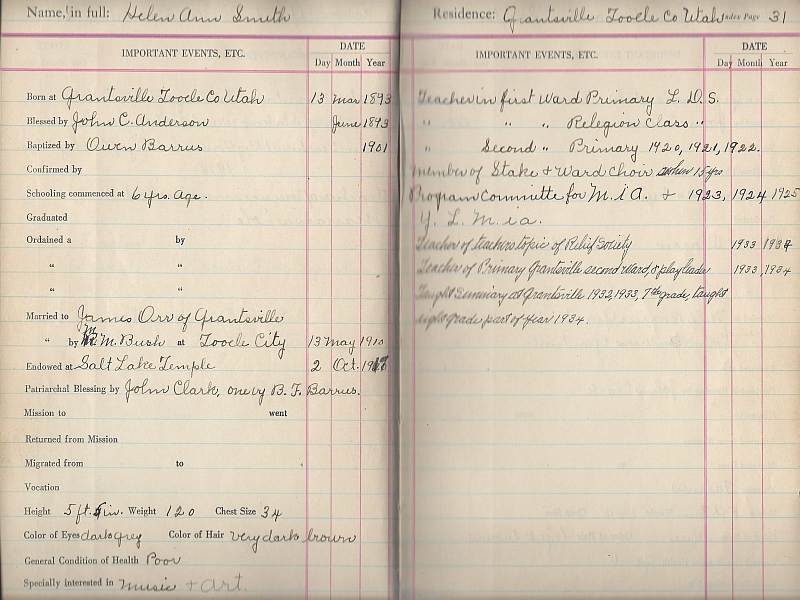 Name, in full: Helen Ann Smith
IMPORTANT EVENTS, ETC. DATE
Day Month Year
Born at Grantsville Tooele Co Utah 13 Mar 1893
Blessed by John C. Anderson June 1893
Baptized by Owen Barrus 1901
Confirmed by
Schooling commenced at 6 yrs. Age.
Graduated
Ordained a by
" "
" "
Married to James Orr of Grantsville
" by M. Bush at Tooele City 13 May 1910
Endowed at Salt Lake Temple 2 Oct.
Patriarchal Blessing by John Clark, one by B. F. Barrus.
Mission to went
Returned from Mission
Migrated from to
Vocation
Height 5 ft. in. Weight 120 Chest Size 34
Color of Eyes dark grey Color of Hair very dark brown
General Condition of Health Poor
Specially interested in music + art.
Residence: Grantsville Tooele Co Utah Index Page 31
IMPORTANT EVENTS, ETC. DATE
Day Month Year
Teacher in first Ward Primary L. D. S.
" " " Relegion Class "
" Second " Primary 1920, 1921, 1922.
member of Stake + Ward Choir when 15 yrs
Program Committe for M. i A. + 1923, 1924 1925
Y. L. M. i a.
Teacher of teachers topic of Relief Society 1933 1934
Teacher of Primary Grantsville second ward, + play leader 1933, 1934
Taught Seminary at Grantsville 1932, 1933, 7th grade, taught
eight grade part of year 1934.